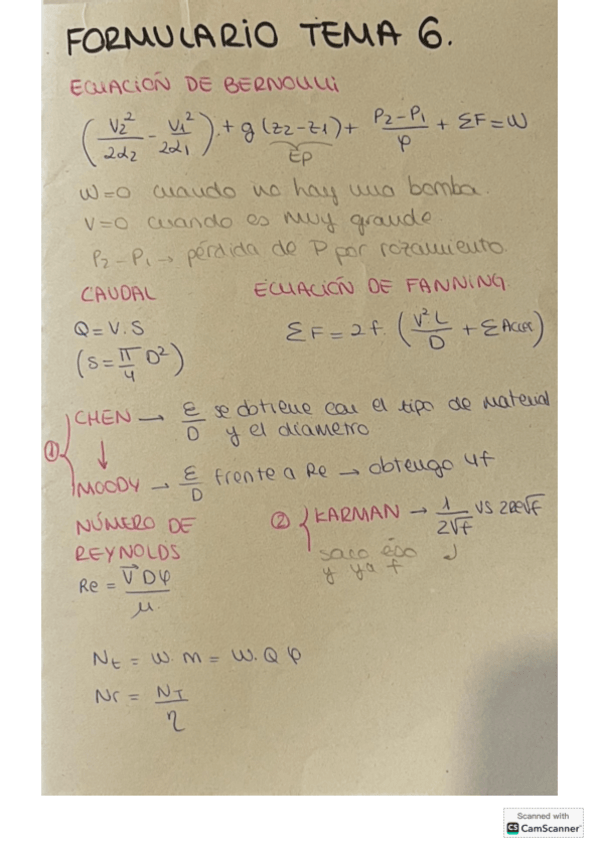 FORMULARIO TEMA 6.
ECUACIÓN DE BERNOULLI
(V₂²/2α₂ - V₁²/2α₁) + g (z₂-z₁) + P₂-P₁/φ + ΣF = W
EP
W=0 cuando no hay una bomba.
V=0 cuando es muy grande.
P₂-P₁ → pérdida de P por rozamiento.
CAUDAL
Q = V.S
(S = π/4 D²)
ECUACIÓN DE FANNING
ΣF = 2f. (V² L/D + ΣAcces)
① CHEN → ε/D se obtiene con el tipo de material
y el diámetro
↓
MOODY → ε/D frente a Re → obtengo 4f
② KARMAN → 1/2√f VS 2Re√f
saco éso
y ya f
NÚMERO DE
REYNOLDS
Re = V D φ/μ
Nt = W. m = W. Q φ
Nr = NT/η
Scanned with
CS CamScanner